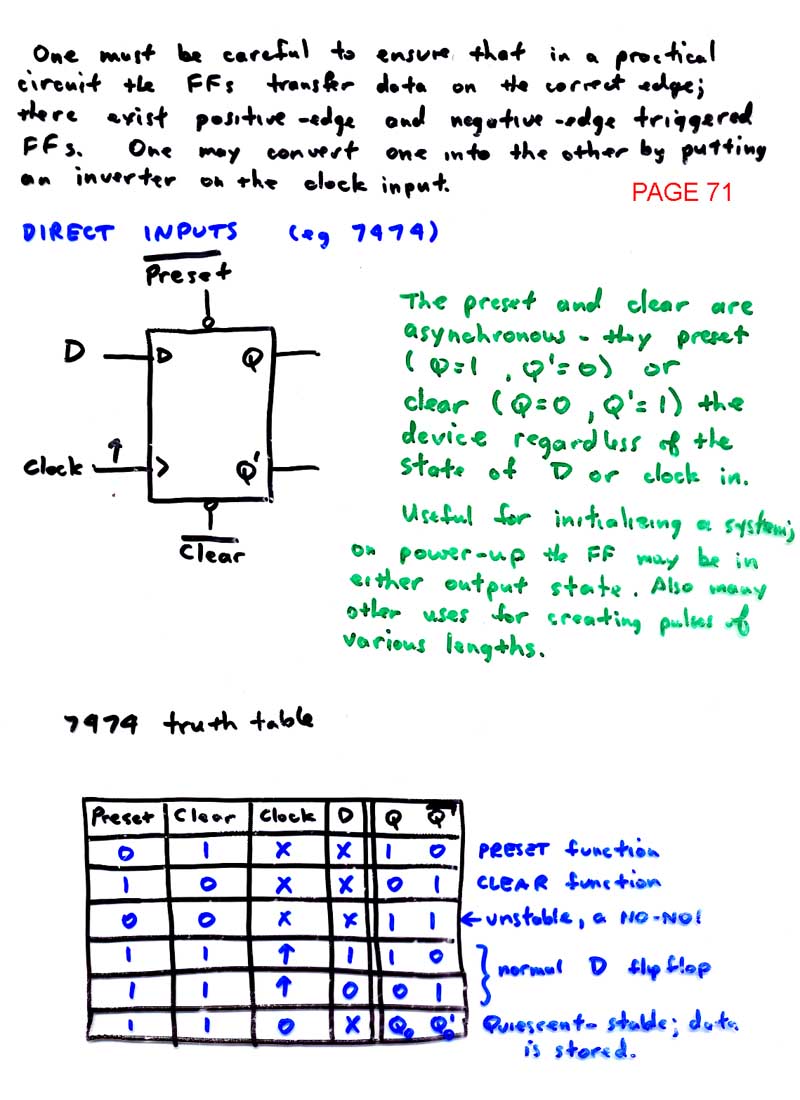 One must be careful to ensure that in a practical
circuit the FFs transfer data on the correct edge;
there exist positive-edge and negative-edge triggered
FFs. One may convert one into the other by putting
an inverter on the clock input.
PAGE 71
DIRECT INPUTS (eg 7474)
Preset
D D Q
Clock ↑ > Q'
Clear
The preset and clear are
asynchronous - they preset
(Q=1, Q'=0) or
clear (Q=0, Q'=1) the
device regardless of the
state of D or clock in.
Useful for initialising a system;
on power-up the FF may be in
either output state. Also many
other uses for creating pulses of
various lengths.
7474 truth table
Preset Clear Clock D Q Q'
0 1 X X 1 0 PRESET function
1 0 X X 0 1 CLEAR function
0 0 X X 1 1 ← unstable, a NO-NO!
1 1 ↑ 1 1 0
normal D flip flop
1 1 ↑ 0 0 1
1 1 0 X Q₀ Q₀' Quiescent- stable; data
is stored.